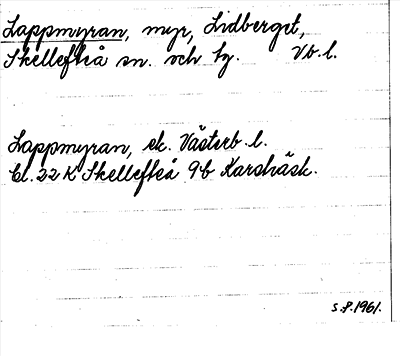 Lappmyran, myr, Lidberget,
Skellefteå sn. och tg. Vb. l.
Lappmyran, ek. Västerb. l.
bl. 22 K Skellefteå 9b Karsträsk.
S.F. 1961.